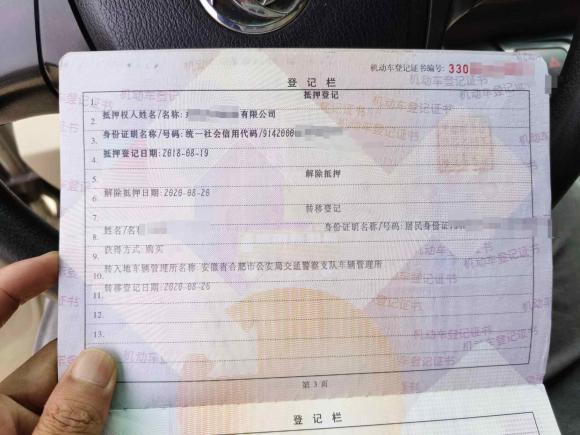 机动车登记证书编号: 330
登记栏
1. 抵押登记
2. 抵押权人姓名/名称: 有限公司
3. 身份证明名称/号码: 统一社会信用代码/9142000
4. 抵押登记日期: 2018-08-19
5. 解除抵押
6. 解除抵押日期: 2020-08-20
7. 转移登记
8. 姓名/名称 身份证明名称/号码: 居民身份证
9. 获得方式: 购买
10. 转入地车辆管理所名称: 安徽省合肥市公安局交通警察支队车辆管理所
11. 转移登记日期: 2020-08-26
12.
13.
第 3 页
登记栏